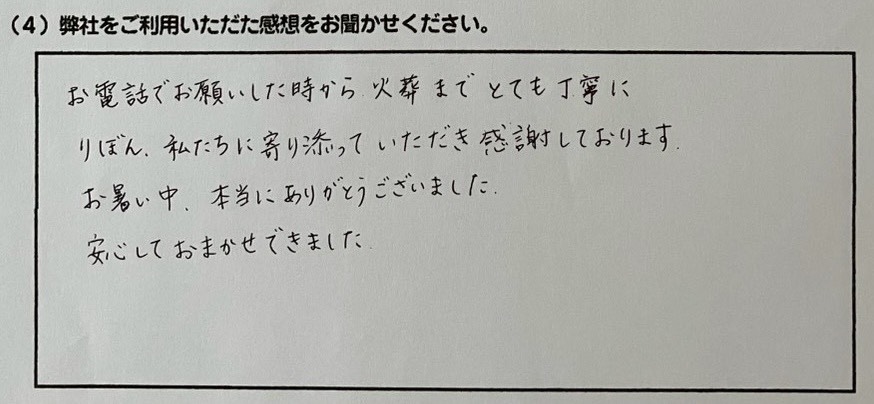 （4）弊社をご利用いただた感想をお聞かせください。
お電話でお願いした時から 火葬まで とても丁寧に
りぼん、私たちに寄り添って いただき 感謝しております。
お暑い中、本当にありがとうございました。
安心して おまかせできました。